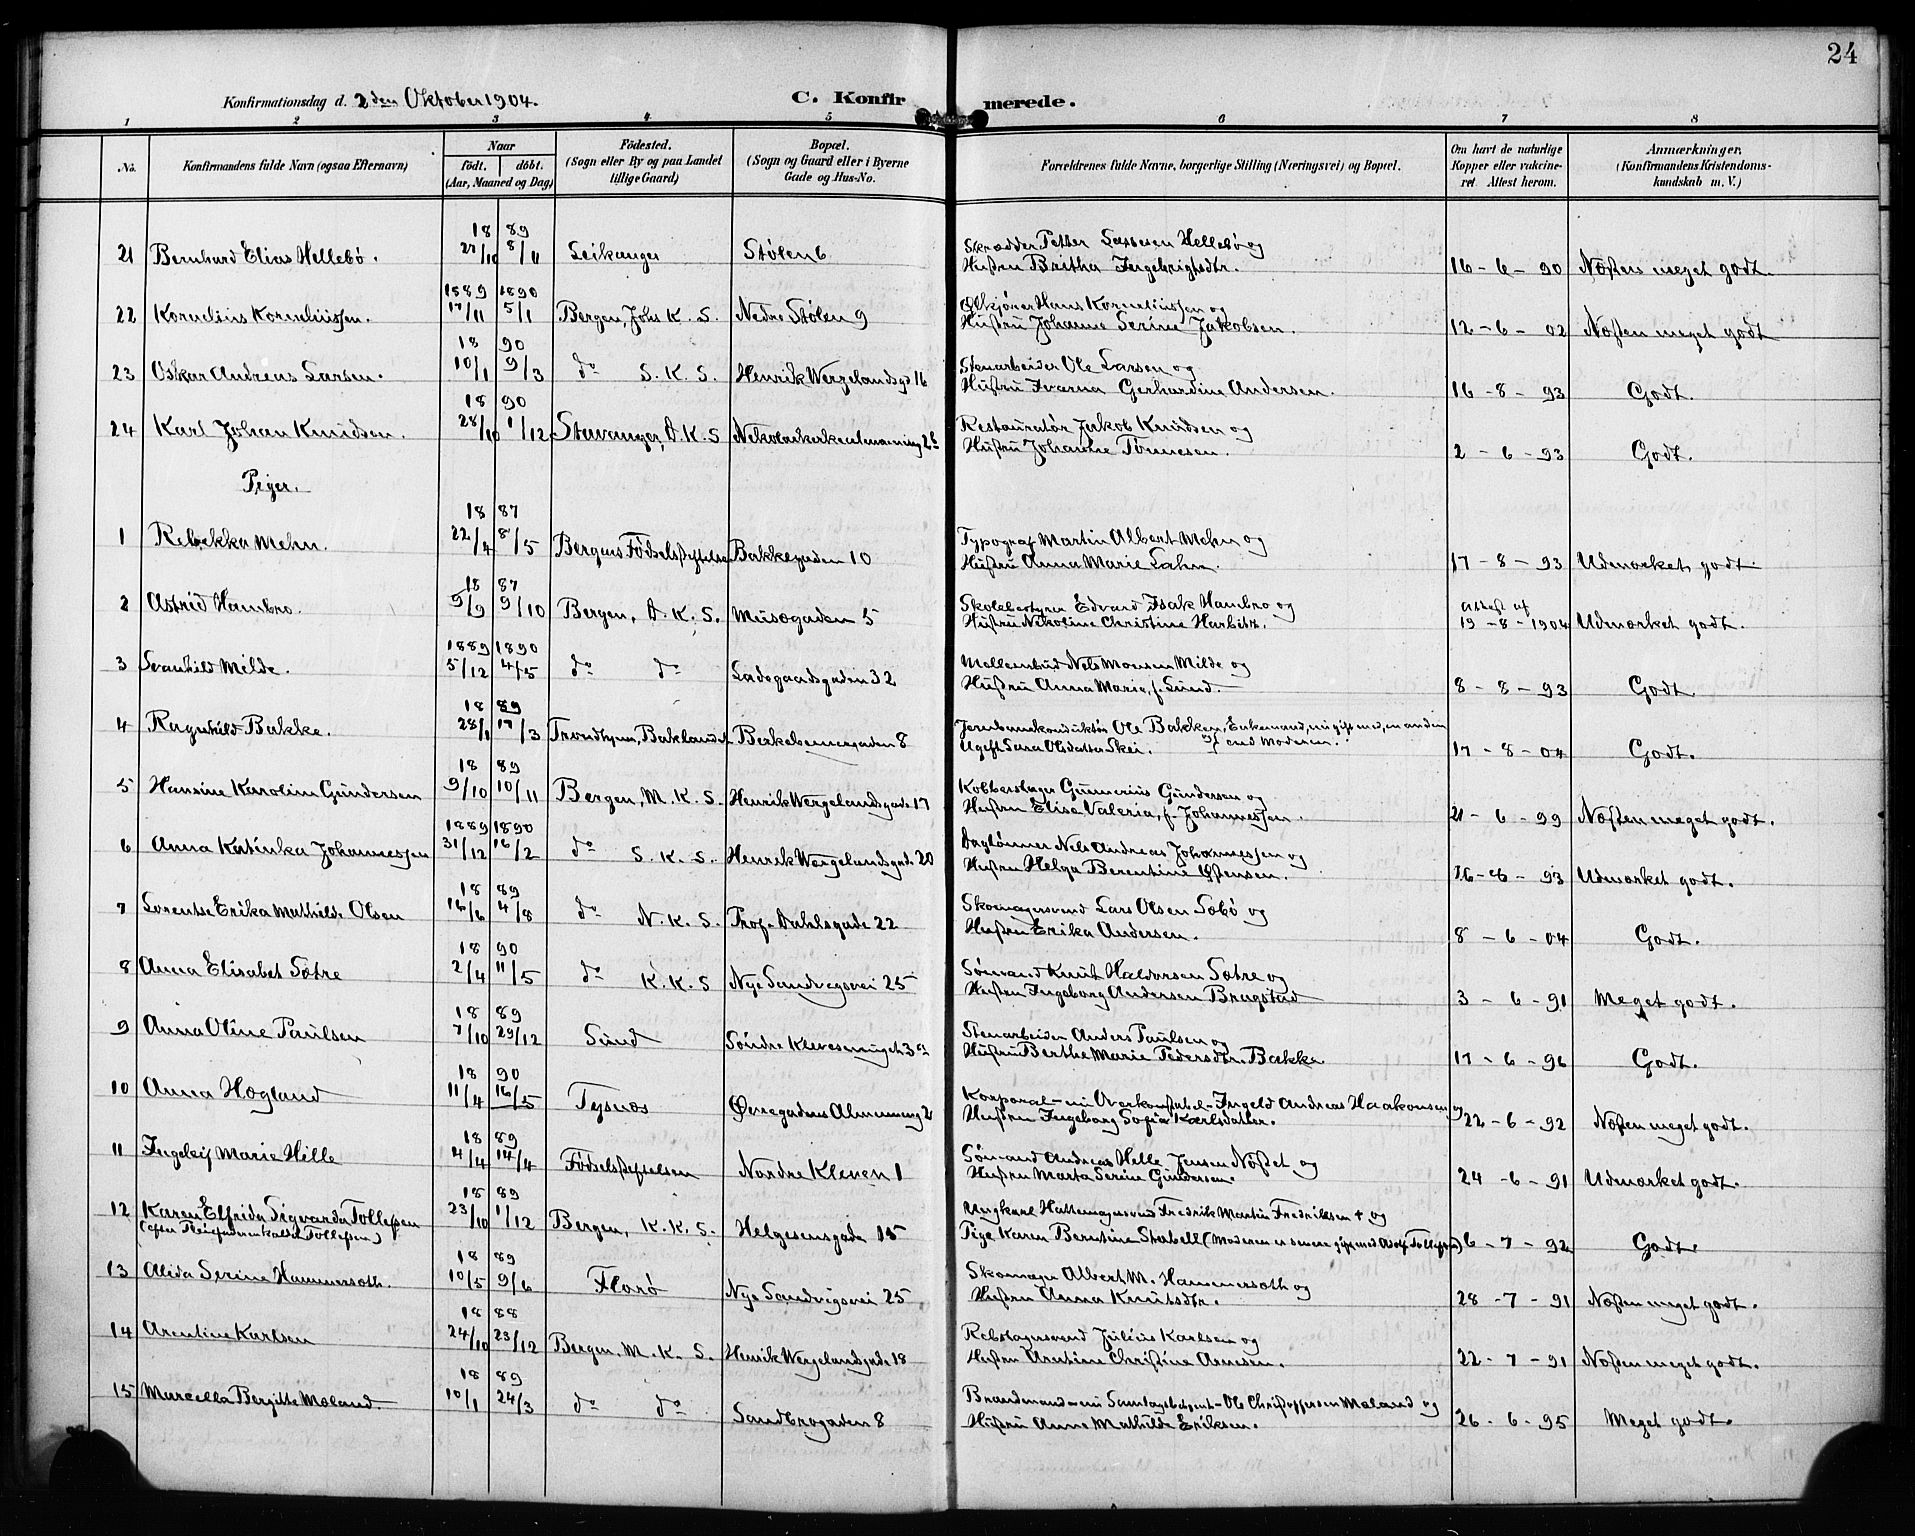 24
Konfirmationsdag d. 2den Oktober 1904.
C. Konfirmerede.
1 2 3 4 5 6 7 8
No.
Konfirmandens fulde Navn (ogsaa Efternavn)
Naar
født. døbt.
(Aar, Maaned og Dag)
Fødested.
(Sogn eller By og paa Landet
tillige Gaard)
Bopæl.
(Sogn og Gaard eller i Byerne
Gade og Hus-No.
Forældrenes fulde Navne, borgerlige Stilling (Næringsvei) og Bopæl.
Om havt de naturlige
Kopper eller vakcine-
ret Attest herom.
Anmærkninger,
(Konfirmandens Kristendoms-
kundskab m. V.)
18 89
21 Bernhard Elias Hellebø. 27/10 8/11 Leikanger Stølen 6
Skrædder Petter Hellebø og
Hustru Britha Ingebrigtsdtr. 16-6-90 Næsten meget godt.
1889 1890
22 Kornelius Korneliussen. 17/11 5/1 Bergen, Johs K. S. Nedre Stølen 9
Hans Korneliussen og
Hustru Johanne Serine Jakobsen. 12-6-02 Næsten meget godt
18 90
23 Oskar Andreas Larsen. 10/1 9/3 do S. K. S. Henrik Wergelandsgd 16
Stenarbeider Ole Larsen og
Hustru Ivarna Gerhardine Andersen. 16-8-93 Godt.
18 90
24 Karl Johan Knudsen. 28/10 1/12 Stavanger, D. K. S
Restauratør Jakob Knudsen og
Hustru Johanne Tønnesen. 2-6-93 Godt.
Piger.
18 87
1 Rebekka Mehn. 22/4 8/5 Bergens Fødselsstiftelse Bakkegaden 10
Typograf Martin Albert Mehn og
Hustru Anna Marie Lahn. 17-8-93 Udmærket godt.
18 87
2 Astrid Hambro. 9/9 9/10 Bergen, D. K. S. Musægaden 5
Skolebestyrer Edvard Isak Hambro og
Hustru Nikoline Christine Harbitz.
Attest af
19-8-1904 Udmærket godt.
1889 1890
3 Svanhild Milde. 5/12 4/5 do do Ladegaardsgaden 32
Nels Monsen Milde og
Hustru Anna Marie, f. Lund. 8-8-93 Godt
18 89
4 Ragnhild Bakke. 28/1 17/3 Trondhjem, Baklandet Birkebeinergaden 8
Jernbanekonduktør Ole Bakken, Enkemand, nu gift med en anden
Ugift Sara Olsdatter Skei. end Moderen. 17-8-04 Godt.
18 89
5 Hansine Karoline Gundersen 9/10 10/11 Bergen, M. K. S. Henrik Wergelandsgade 17
Kobberslager Gunnerius Gundersen og
Hustru Elisa Valeria, f. Johannessen. 21-6-99 Næsten meget godt.
1889 1890
6 Anna Katinka Johannessen 31/12 16/2 do S. K. S. Henrik Wergelandsgade 20
Daglønner Nels Andreas Johannessen og
Hustru Helga Berentine Østensen. 16-8-93 Udmærket godt.
18 89
7 Lorentse Erika Mathilde Olsen 16/6 4/8 do N. K. S. Prof. Dahlsgade 22
Skomagersvend Lars Olsen Sæbø og
Hustru Erika Andersen. 8-6-04 Godt.
18 90
8 Anna Elisabet Sætre 2/4 11/5 do K. K. S Nye Sandvigsvei 25
Sømand Knut Haldorsen Sætre og
Hustru Ingeborg Andersen Bragstad 3-6-91 Meget godt.
18 89
9 Anna Oline Paulsen 7/10 29/12 Sund Søndre
Stenarbeider Anders Paulsen og
Hustru Berthe Marie Pedersdtr. Bakke 17-6-96 Godt.
18 90
10 Anna Hogland 11/4 16/5 Tysnæs Øvregadens Almenning 2
Korporal - nu Overkonstabel - Ingeld Andreas Haakonsen og
Hustru Ingeborg Sofie Karlsdatter. 22-6-92 Næsten meget godt.
18 89
11 Ingeleif Marie Hille 4/4 14/4 Fødselsstiftelsen Nordre Kleven 1
Sømand Andreas Helle Jensen Nøstet og
Hustru Marta Serine Gundersen. 24-6-91 Udmærket godt.
18 89
12 Karen Elfrida Sigvarda Tollefsen 23/10 1/12 Bergen, K. K. S. Helgesensgade 15
(efter Pleiefaderen kaldt Tollefsen)
Ungkarl Hattemagersvend Fredrik Martin Fredriksen + og
Pige Karen Berntine Stabell (Moderen er senere gift med Adolf Tollefsen) 6-7-92 Godt.
18 89
13 Alida Serine Hammersoth. 10/5 9/6 Florø Nye Sandvigsvei 25
Skomager Albert M. Hammersoth og
Hustru Anna Knutsdtr. 28-7-91 Næsten meget godt.
18 88
14 Arentine Karlsen 24/10 23/12 Bergen, M. K. S. Henrik Wergelandsgade 18
Rebslagersvend Julius Karlsen og
Hustru Arentine Christine Arnesen. 22-7-91 Næsten meget godt.
18 89
15 Marcella Bergitte Møland. 10/1 24/3 do do Sandbrogaden 8
Brandmand - nu - Ole Christoffersen Møland og
Hustru Anne Mathilde Eriksen. 26-6-95 Meget godt.